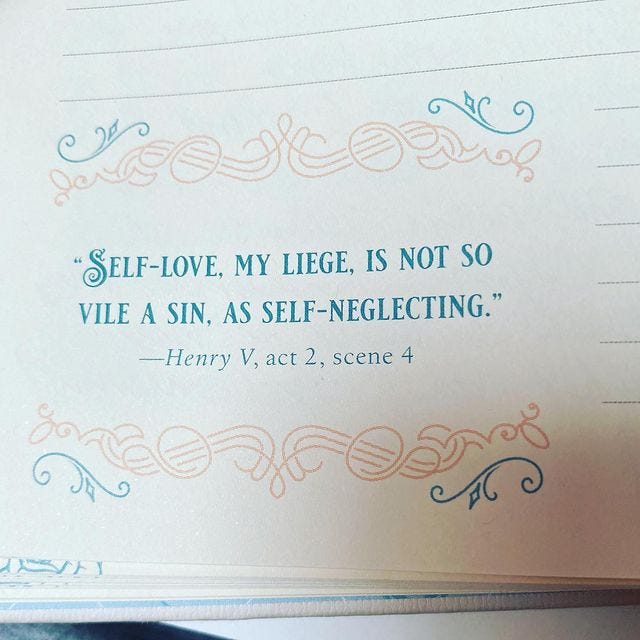 “Self-love, my liege, is not so
vile a sin, as self-neglecting.”
—Henry V, act 2, scene 4